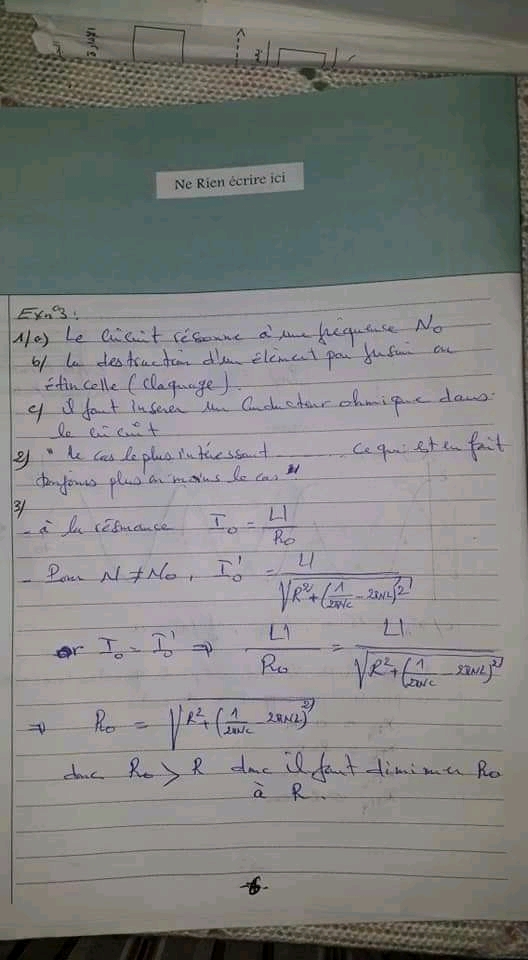 Ne Rien écrire ici
Ex n°3 :
1/a) Le circuit résonne à une fréquence N₀
b) La destruction d'un élément par fusion ou
étincelle (claquage).
c) il faut inserer un Conducteur ohmique dans
le circuit
2) " le cas le plus intéressant ........ ce qui est en fait
toujours plus ou moins le cas "
3)
- à la résonance I₀ = U/R₀
- Pour N ≠ N₀, I₀' = U/√(R²+(1/2πNC - 2πNL)²)
or I₀ = I₀' ⇒ U/R₀ = U/√(R²+(1/2πNC - 2πNL)²)
⇒ R₀ = √(R²+(1/2πNC - 2πNL)²)
donc R₀ > R donc il faut diminuer R₀
à R.
6